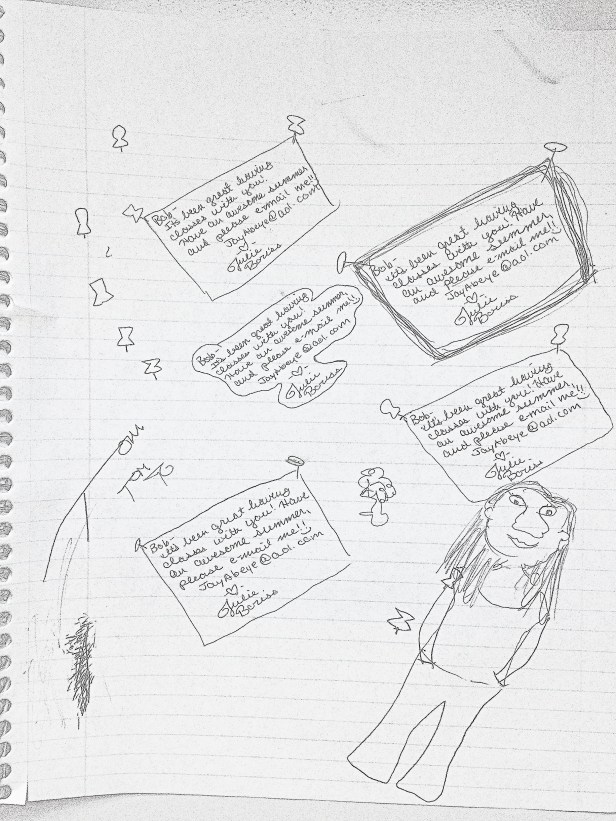 Bob-
It's been great having
classes with you!
Have an awesome summer
and please e-mail me!!
JayAbeye@aol.com
♡-
Julie
Boriss
Bob-
it's been great having
classes with you! Have
an awesome summer,
and please e-mail me!!
JayAbeye@aol.com
♡-
Julie
Boriss
Bob-
It's been great having
classes with you!
Have an awesome summer
and please e-mail me!!
JayAbeye@aol.com
-♡-
Julie
Boriss
Bob-
it's been great having
classes with you! Have
an awesome summer,
and please e-mail me!!
JayAbeye@aol.com
♡-
Julie
Boriss
Bob-
it's been great having
classes with you! Have
an awesome summer,
please e-mail me!!
JayAbeye@aol.com
♡-
Julie
Boriss